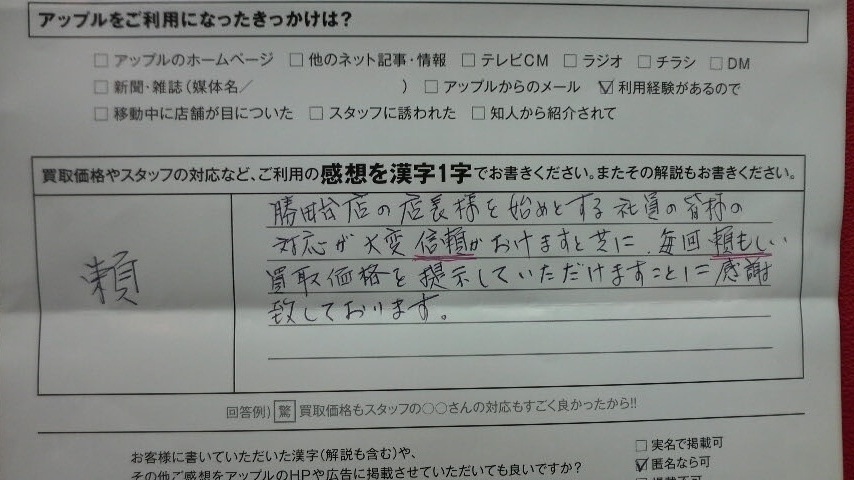 アップルをご利用になったきっかけは?
□ アップルのホームページ □ 他のネット記事・情報 □ テレビCM □ ラジオ □ チラシ □ DM
□ 新聞・雑誌(媒体名/ ) □ アップルからのメール ☑ 利用経験があるので
□ 移動中に店舗が目についた □ スタッフに誘われた □ 知人から紹介されて
買取価格やスタッフの対応など、ご利用の感想を漢字1字でお書きください。またその解説もお書きください。
頼
勝田台店の店長様を始めとする社員の皆様の
対応が大変信頼がおけますと共に、毎回頼もしい
買取価格を提示していただけますことに感謝
致しております。
回答例) 驚 買取価格もスタッフの○○さんの対応もすごく良かったから!!
お客様に書いていただいた漢字(解説も含む)や、
その他ご感想をアップルのHPや広告に掲載させていただいても良いですか?
□ 実名で掲載可
☑ 匿名なら可